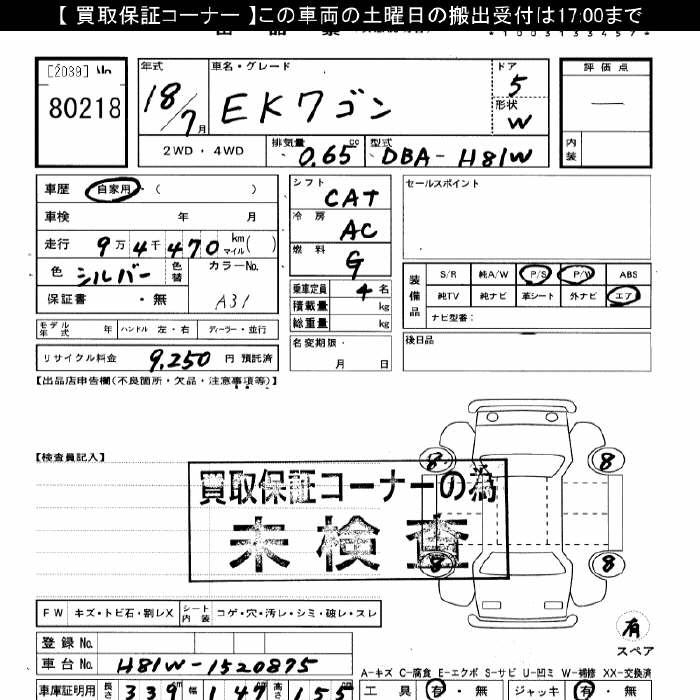 【 買取保証コーナー 】この車両の土曜日の搬出受付は17:00まで
*1003133457*
[2039] No
80218
年式
18/7月
車名・グレード
EKワゴン
ドア
5
形状
W
評価点
—
内装
2WD・4WD
排気量
0.65 cc
型式
DBA-H81W
車歴 自家用 ( )
車検 年 月
走行 9万4千470 km マイル( )
色 シルバー 色替
カラーNo.
A31
保証書 ・無
モデル年式 年 ハンドル 左・右 ディーラー・並行
リサイクル料金 9,250 円 預託済
シフト
CAT
冷房
AC
燃料
G
乗車定員 4 名
積載量 kg
総重量 kg
名変期限・
月 日
セールスポイント
装備品
S/R 純A/W P/S P/W ABS
純TV 純ナビ 革シート 外ナビ エア
ナビ型番:
後日品
【出品店申告欄(不良箇所・欠品・注意事項等)】
【検査員記入】
買取保証コーナーの為
未検査
8 8
8 8
有
スペア
FW キズ・トビ石・割レX シート内装 コゲ・穴・汚レ・シミ・破レ・スレ
登録 No.
車台 No. H81W-1520875
車庫証明用 長さ 339 幅 147 高さ 155
A-キズ C-腐食 E-エクボ S-サビ U-凹ミ W-補修 XX-交換済
工具 有・無 ジャッキ 有・無